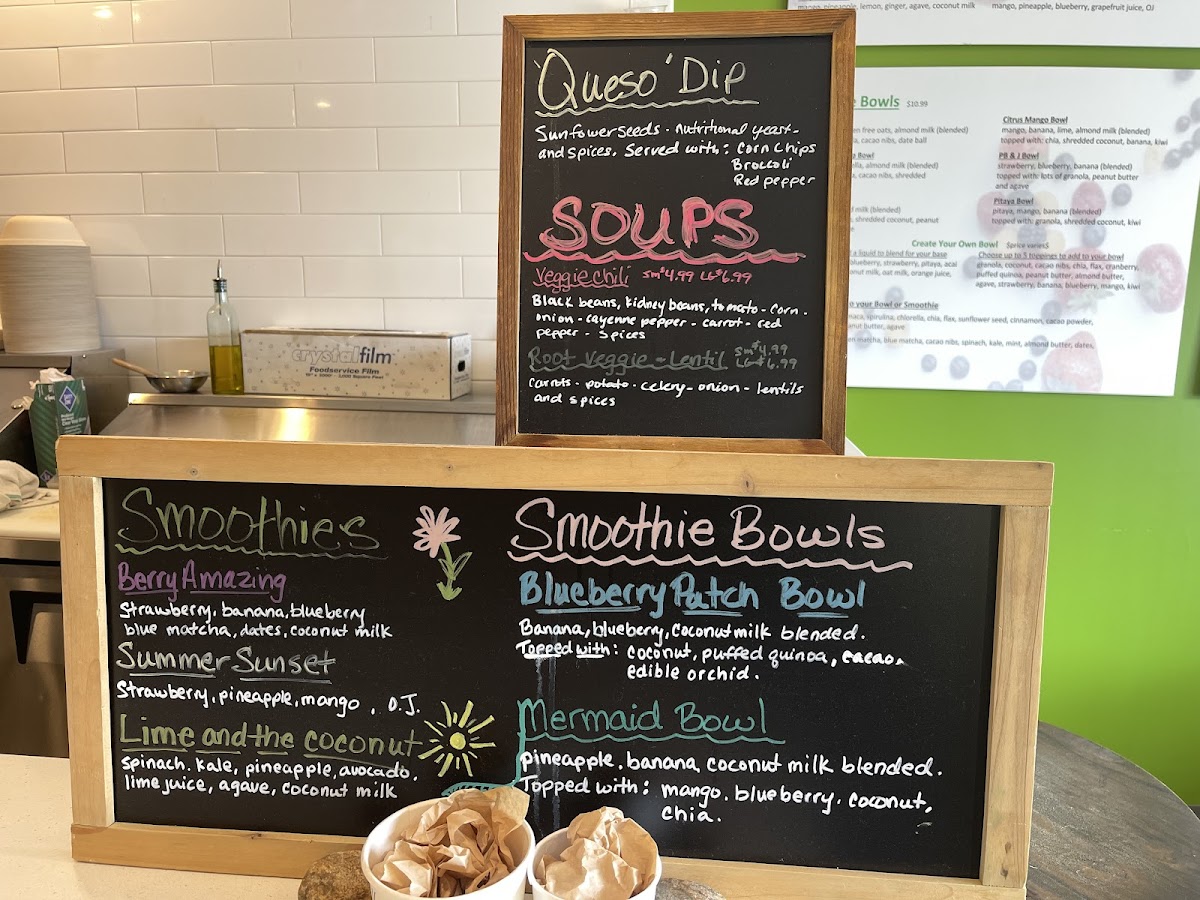 mango, pineapple, lemon, ginger, agave, coconut milk
mango, pineapple, blueberry, grapefruit juice, OJ
'Queso' Dip
Sunflower seeds - nutritional yeast -
and spices. Served with: Corn Chips
Broccoli
Red pepper
SOUPS
Veggie Chili Sm $4.99 LG $6.99
Black beans, kidney beans, tomato - corn -
onion - cayenne pepper - carrot - red
pepper - spices
Root Veggie - Lentil Sm $4.99
LG $6.99
carrots - potato - celery - onion - lentils
and spices
Bowls $10.99
free oats, almond milk (blended)
cacao nibs, date ball
Bowl
almond milk (blended)
cacao nibs, shredded
milk (blended)
shredded coconut, peanut
Citrus Mango Bowl
mango, banana, lime, almond milk (blended)
topped with: chia, shredded coconut, banana, kiwi
PB & J Bowl
strawberry, blueberry, banana (blended)
topped with: lots of granola, peanut butter
and agave
Pitaya Bowl
pitaya, mango, banana (blended)
topped with: granola, shredded coconut, kiwi
Create Your Own Bowl $price varies$
a liquid to blend for your base
blueberry, strawberry, pitaya, acai
milk, oat milk, orange juice,
Choose up to 5 toppings to add to your bowl
granola, coconut, cacao nibs, chia, flax, cranberry,
puffed quinoa, peanut butter, almond butter,
agave, strawberry, banana, blueberry, mango, kiwi
your Bowl or Smoothie
maca, spirulina, chlorella, chia, flax, sunflower seed, cinnamon, cacao powder,
butter, agave
matcha, blue matcha, cacao nibs, spinach, kale, mint, almond butter, dates,
crystalfilm™
Foodservice Film
Smoothies
Berry Amazing
Strawberry, banana, blueberry
blue matcha, dates, coconut milk
Summer Sunset
Strawberry, pineapple, mango, O.J.
Lime and the coconut
spinach. kale, pineapple, avocado,
lime juice, agave, coconut milk
Smoothie Bowls
Blueberry Patch Bowl
Banana, blueberry, coconut milk blended.
Topped with: coconut, puffed quinoa, cacao,
edible orchid.
Mermaid Bowl
pineapple. banana, coconut milk blended.
Topped with: mango. blueberry. coconut,
chia.